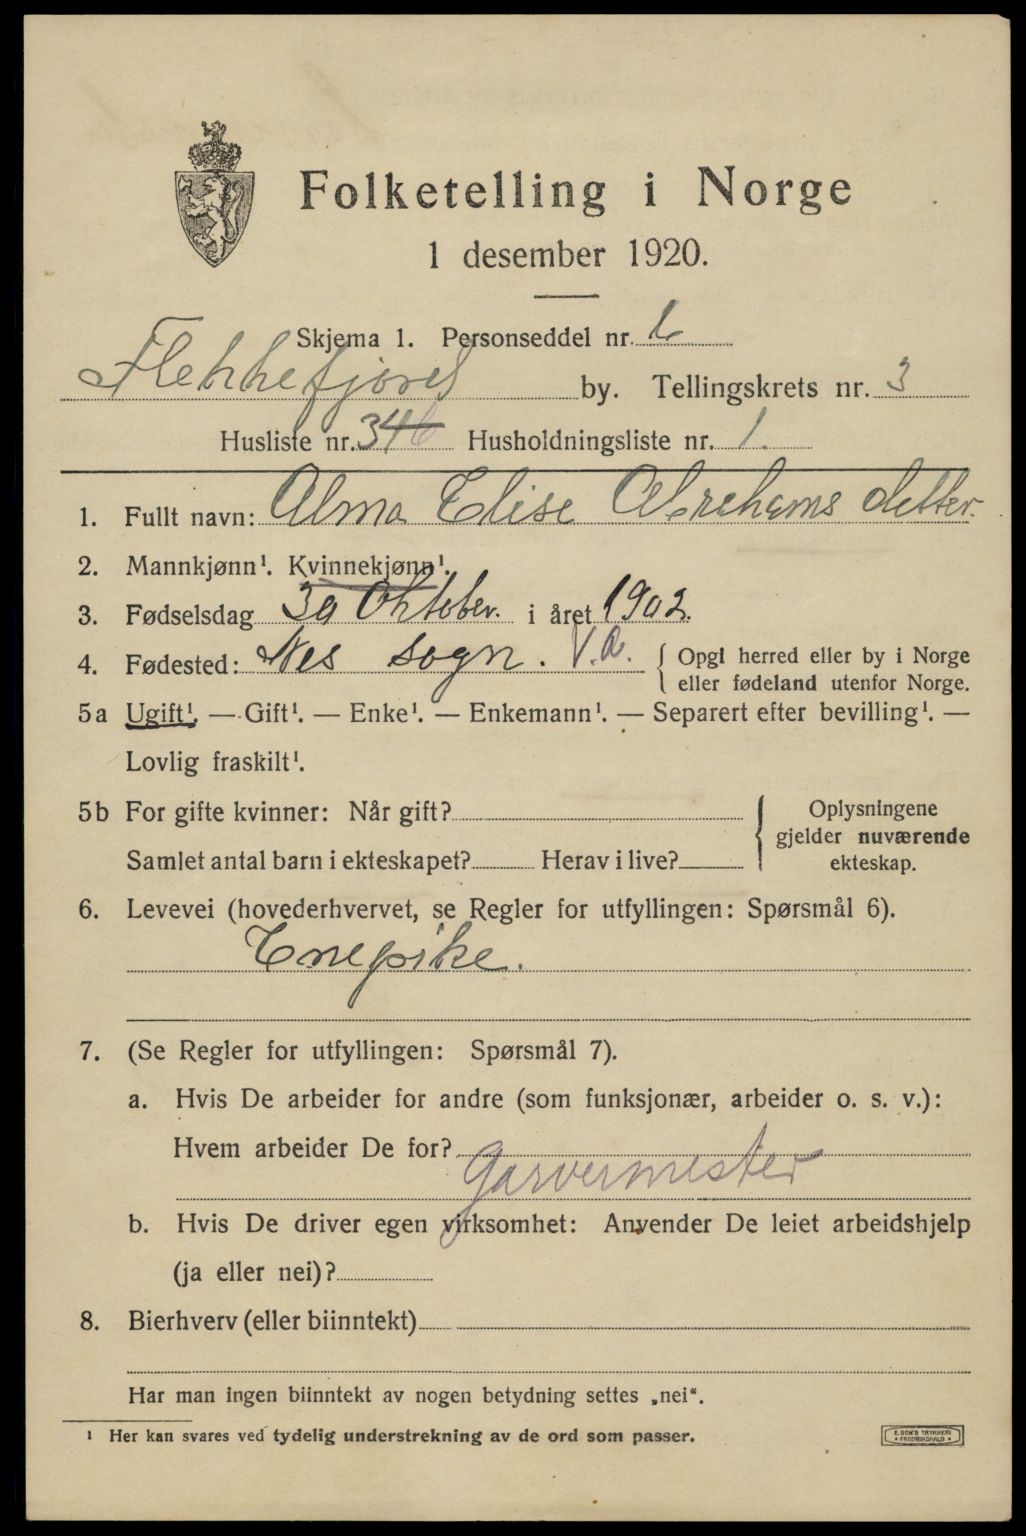 Folketelling i Norge
1 desember 1920.
Skjema 1. Personseddel nr.
Flekkefjord by. Tellingskrets nr. 3
Husliste nr. 34 Husholdningsliste nr. 1.
1. Fullt navn: Alma Elise Abrahams datter.
2. Mannkjønn¹. Kvinnekjønn¹.
3. Fødselsdag 30 Oktober. i året 1902.
4. Fødested: Nes sogn. V.A. { Opgi herred eller by i Norge
eller fødeland utenfor Norge.
5a Ugift¹. — Gift¹. — Enke¹. — Enkemann¹. — Separert efter bevilling¹. —
Lovlig fraskilt¹.
5b For gifte kvinner: Når gift? { Oplysningene
gjelder nuværende
Samlet antal barn i ekteskapet? Herav i live? ekteskap.
6. Levevei (hovederhvervet, se Regler for utfyllingen: Spørsmål 6).
Enepike.
7. (Se Regler for utfyllingen: Spørsmål 7).
a. Hvis De arbeider for andre (som funksjonær, arbeider o. s. v.):
Hvem arbeider De for?
Garvermester
b. Hvis De driver egen virksomhet: Anvender De leiet arbeidshjelp
(ja eller nei)?
8. Bierhverv (eller biinntekt)
Har man ingen biinntekt av nogen betydning settes „nei“.
¹ Her kan svares ved tydelig understrekning av de ord som passer.
E. SEM'S TRYKKERI
• FREDRIKSHALD •